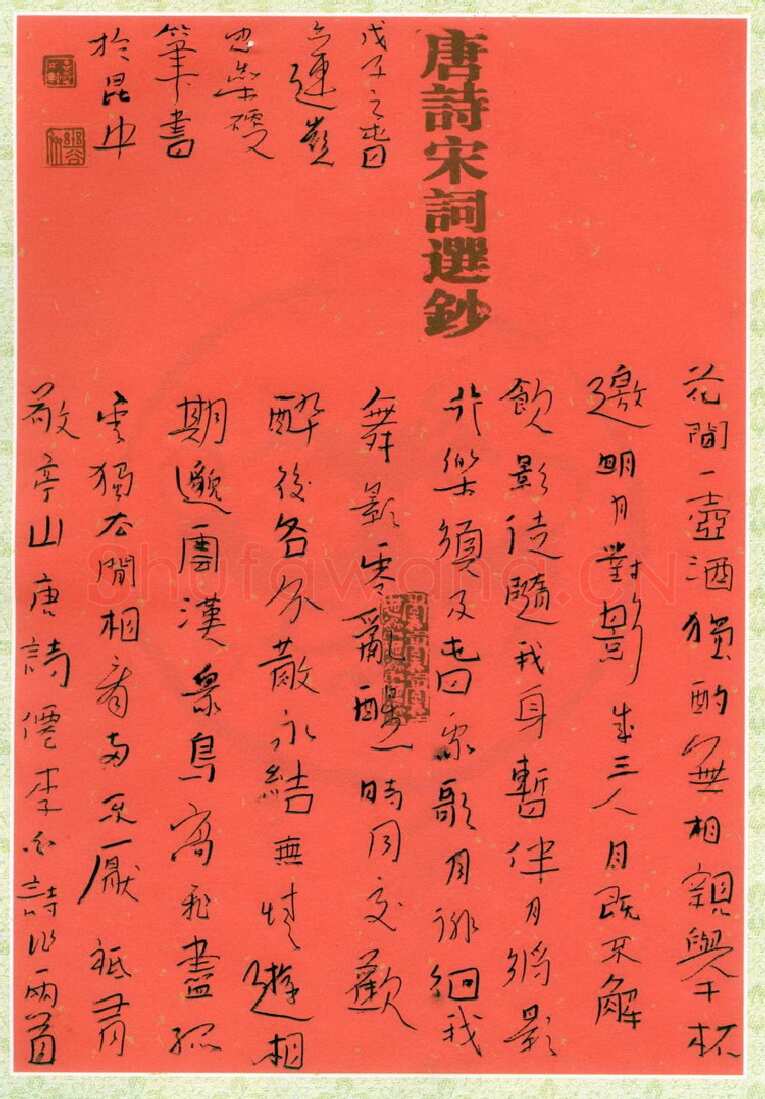 唐詩宋詞選鈔
花間一壺酒獨酌無相親舉杯
邀明月對影成三人月既不解
飲影徒隨我身暫伴月將影
行樂須及春我歌月徘徊我
舞影零亂醒時同交歡
醉後各分散永結無情遊相
期邈雲漢眾鳥高飛盡孤
雲獨去閒相看兩不厭祗有
敬亭山唐詩僊李白詩作兩首
戊子之春
硬
筆書
於昆中
Shufawang.CN